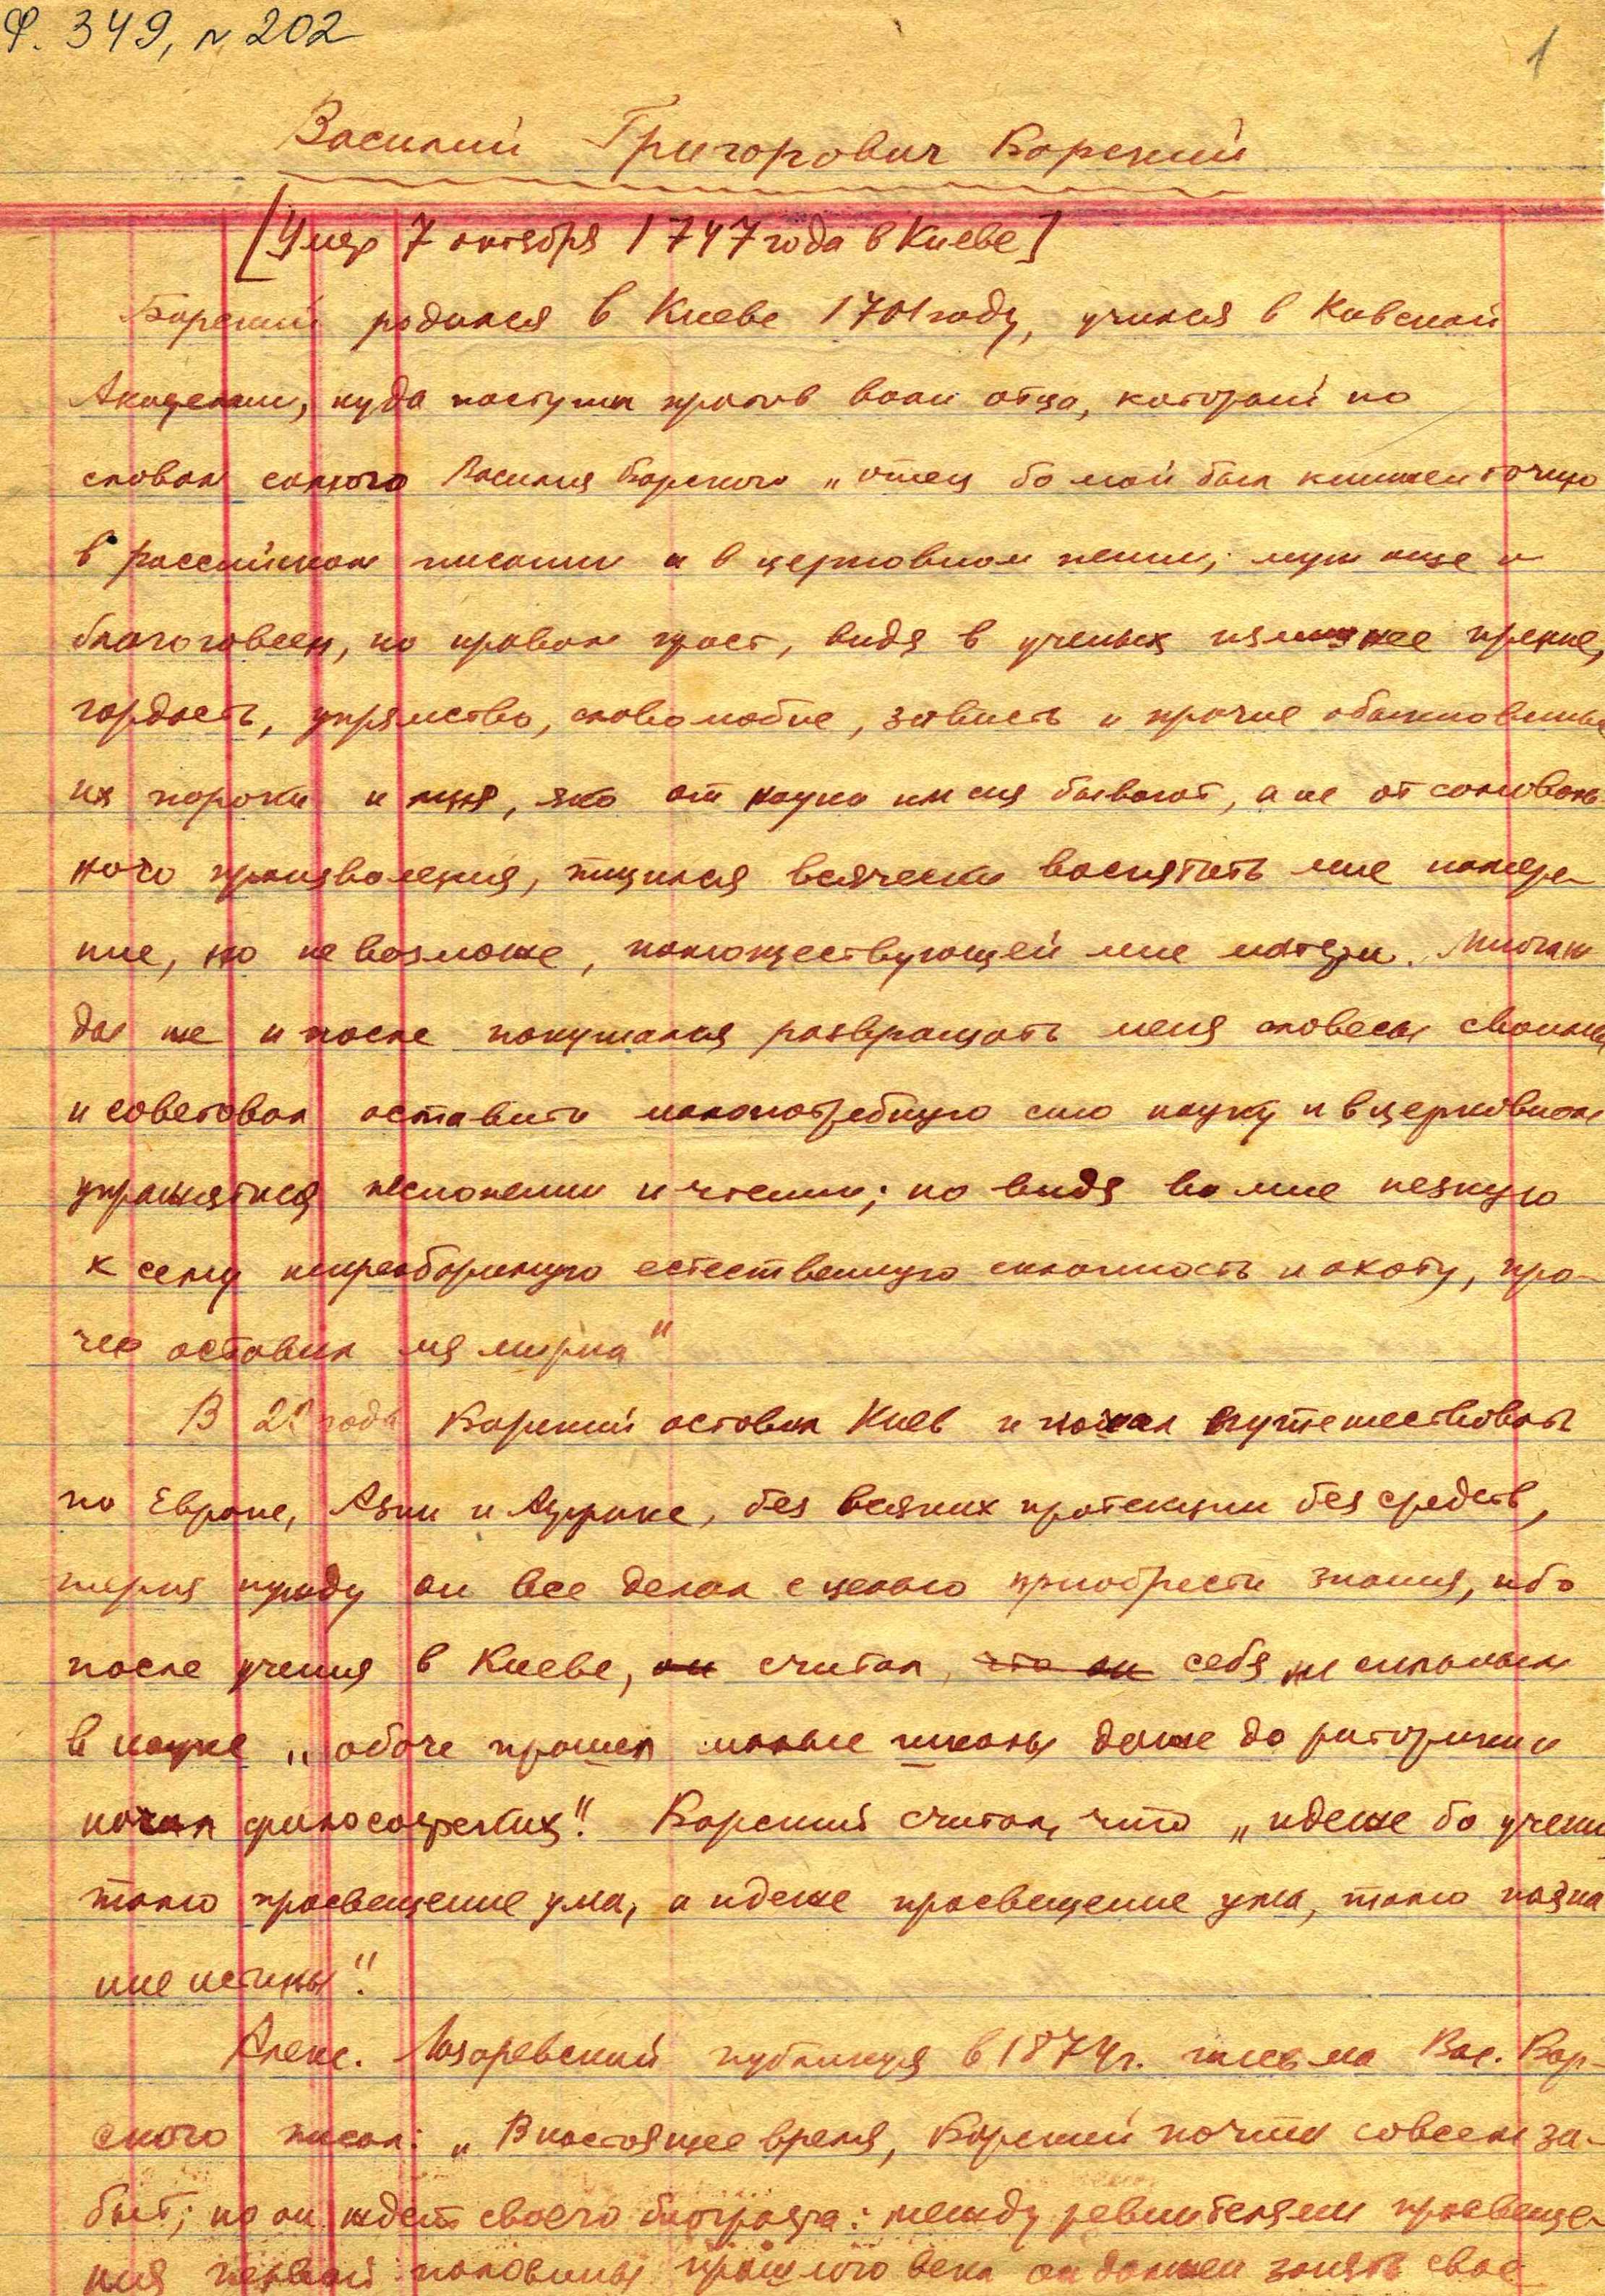 Ф. 349, № 202
1
Василий Григорович Барский
[Умер 7 октября 1747 года в Киеве]
Барский родился в Киеве 1701 году, учился в Киевской
Академии, куда поступил против воли отца, который по
словам самого Василия Барского „отец бо мой был книжен точию
в российском писании и в церковном пении; муж аще и
благоговеен, но нравом прост, видя в ученых излишнее прение,
гордость, упрямство, славолюбие, зависть и прочие обыкновенные
их пороки и мня, яко от науки им сия бывают, а не от самоволь
ного произволения, тщился всячески воспятить мне намере-
ние, но не возможе, помоществующей мне матери. Многаж
ды же и после покушался развращать меня словесы своими
и советовал оставити малопотребную сию науку и в церковном
упражнятися песнопении и чтении; но видя во мне некую
к сему непреоборимую естественную склонность и охоту, про-
чее оставил мя мирна"
В 22 года Барский оставил Киев и начал путешествовать
по Европе, Азии и Африке, без всяких протекции без средств,
терпя нужду он все делал с целью приобрести знания, ибо
после учения в Киеве, он считал, что он себя не сильным
в науке „обаче прошел малые школы даже до риторики и
начал философских". Барский считал, что „идеже бо учени
тамо просвещение ума, а идеже просвещение ума, тамо позна
ние истины".
Алекс. Лазаревский публикуя в 1874 г. письма Вас. Бар-
ского писал: „В настоящее время, Барский почти совсем за-
быт; но он ждет своего биографа: между ревнителями просвеще-
ния первой половины прошлого века он должен занять свое